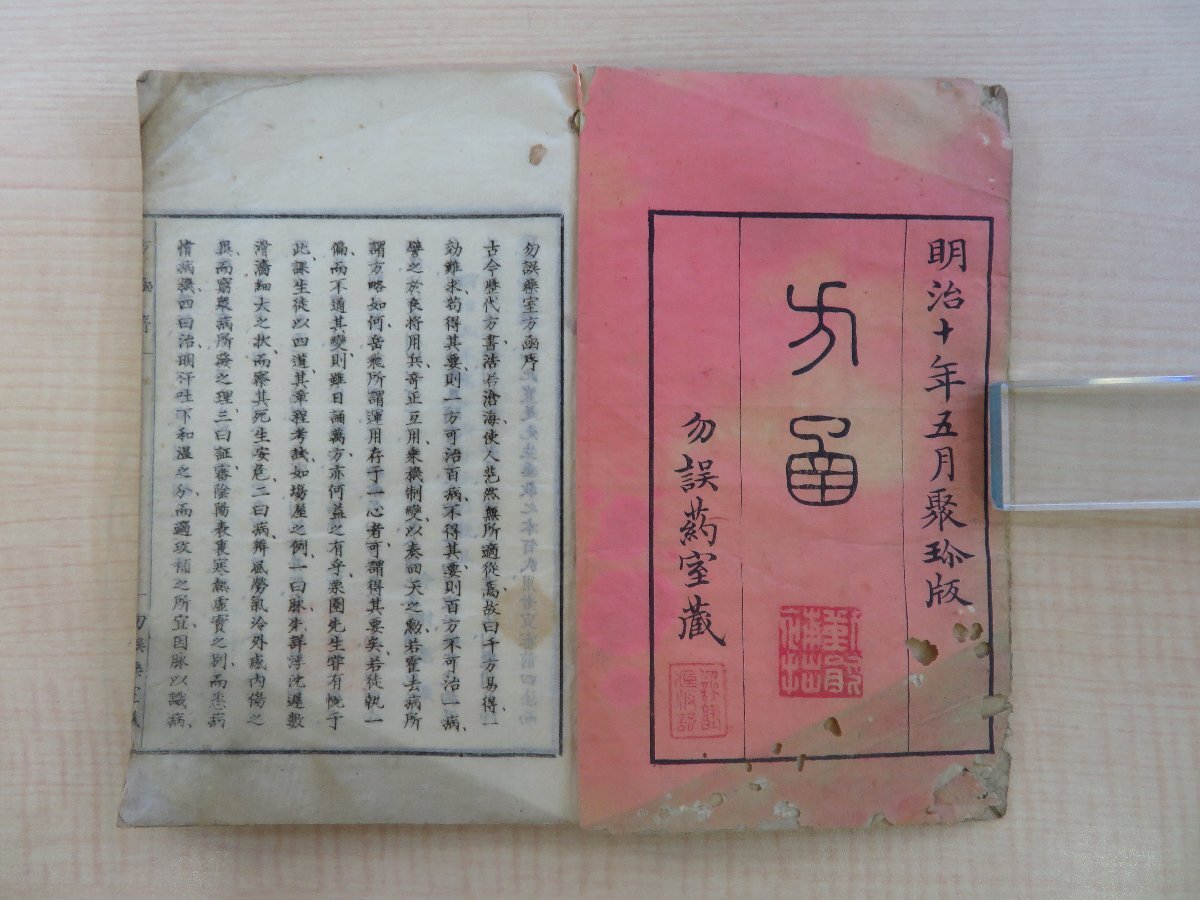 明治十年五月聚珍版
方函
勿誤葯室藏
勿誤藥室方函序
古今歷代方書浩若滄海使人茫然無所適從焉故曰千方易得一
効難求苟得其要則一方可治百病不得其要則百方不可治一病
譬之於良將用兵奇正互用乘機制變以奏回天之勳若霍去病所
謂方略如何岳飛所謂運用存于一心者可謂得其要矣若徒執一
偏而不通其變則雖日誦萬方亦何益之有乎栗園先生嘗有慨于
此課生徒以四道其章程考試如場屋之例一曰脈先詳浮沈遲數
滑濇細大之狀而察其死生安危二曰病辨風勞氣冷外感內傷之
異而窮衆病所發之理三曰証審陰陽表裏寒熱虛實之別而悉病
情病機四曰治明汗吐下和溫之分而適攻補之所宜因脈以識病